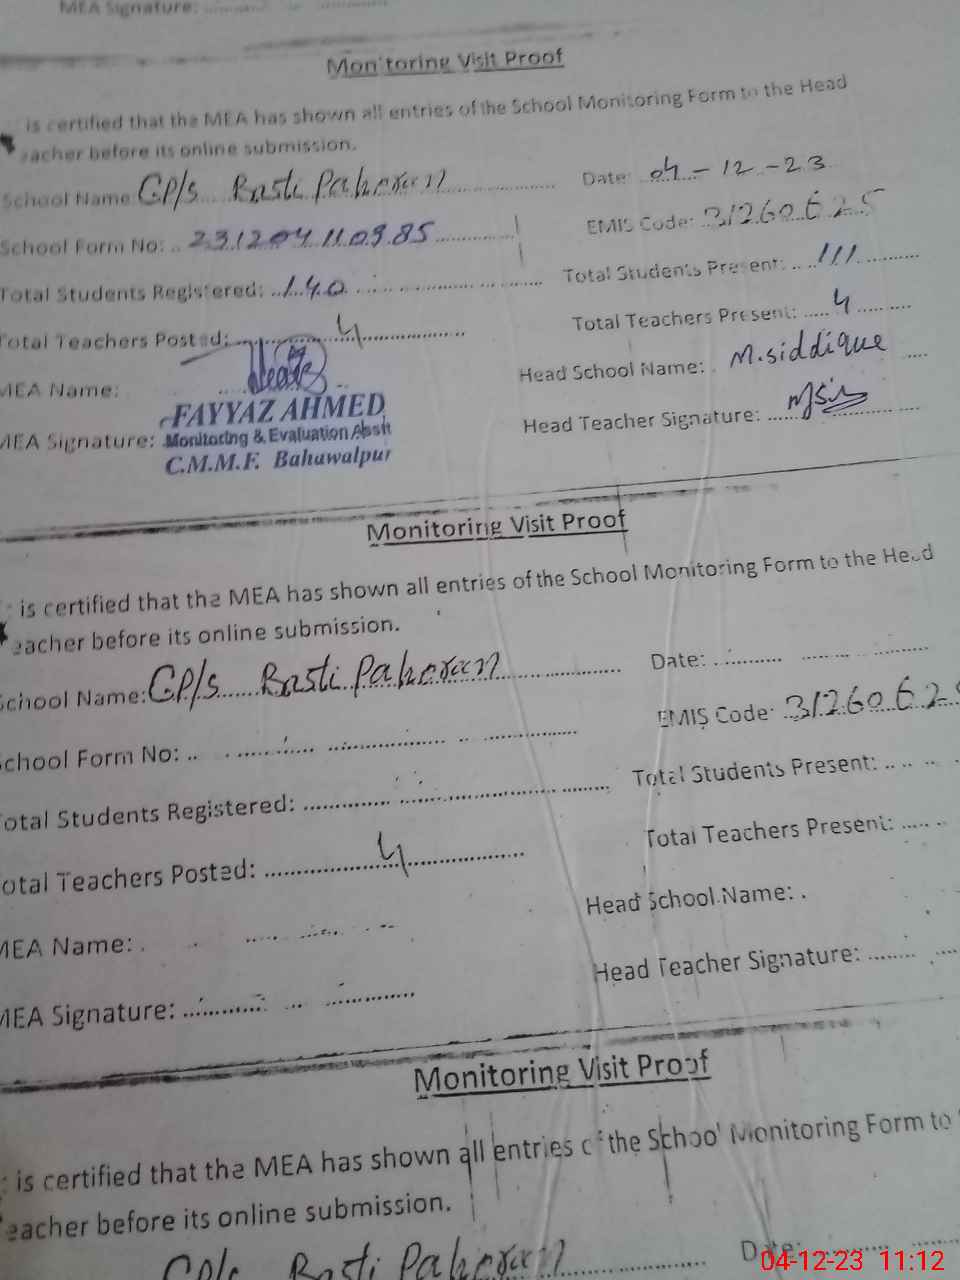 MEA Signature: ..........
Monitoring Visit Proof
is certified that the MEA has shown all entries of the School Monitoring Form to the Head
eacher before its online submission.
School Name: GP/s Basti Paharan Date: 04-12-23
School Form No: 231204110985 EMIS Code: 31260625
Total Students Registered: 140 Total Students Present: 111
Total Teachers Posted: 4 Total Teachers Present: 4
MEA Name: Head School Name: M.siddique
FAYYAZ AHMED
MEA Signature: Monitoring & Evaluation Asstt Head Teacher Signature:
C.M.M.F. Bahawalpur
Monitoring Visit Proof
is certified that the MEA has shown all entries of the School Monitoring Form to the Head
eacher before its online submission.
School Name: GP/s Basti Paharan Date:
School Form No: EMIS Code: 31260625
Total Students Registered: Total Students Present:
Total Teachers Posted: 4 Total Teachers Present:
MEA Name: Head School Name:
MEA Signature: Head Teacher Signature:
Monitoring Visit Proof
is certified that the MEA has shown all entries of the School Monitoring Form to
eacher before its online submission.
GP/s Basti Paharan Date:
04-12-23 11:12